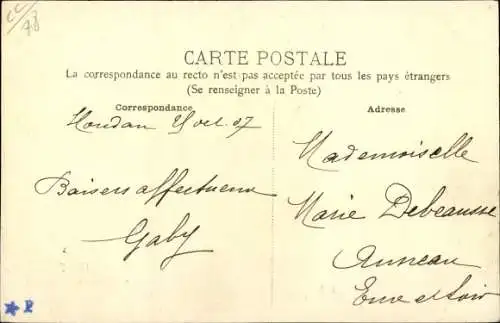 CARTE POSTALE
La correspondance au recto n'est pas acceptée par tous les pays étrangers
(Se renseigner à la Poste)
Correspondance
Adresse
Houdan oct. 07
Baisers affectueux
Gaby
Mademoiselle
Marie Debeausse
Auneau
Eure et Loir